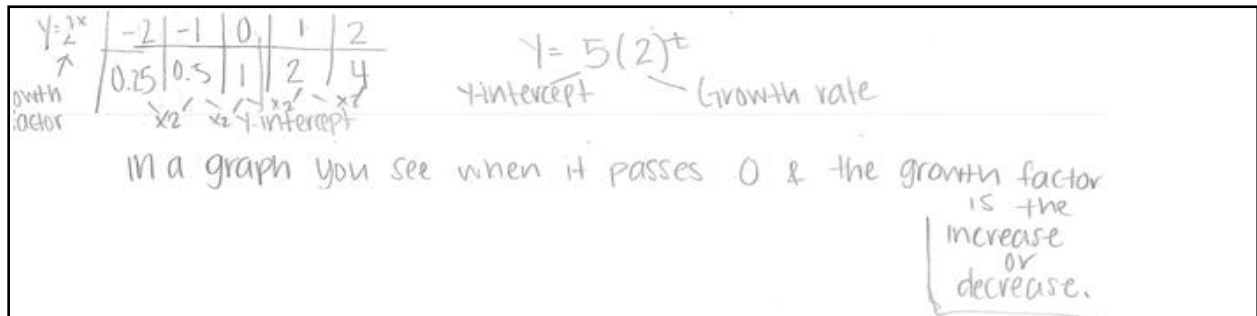 Y=2ˣ | -2 | -1 | 0 | 1 | 2
0.25 | 0.5 | 1 | 2 | 4
owth
actor
x2 x2 x2 x2
Y-intercept
Y= 5(2)ᵗ
Y-intercept Growth rate
In a graph you see when it passes 0 & the growth factor
is the
increase
or
decrease.